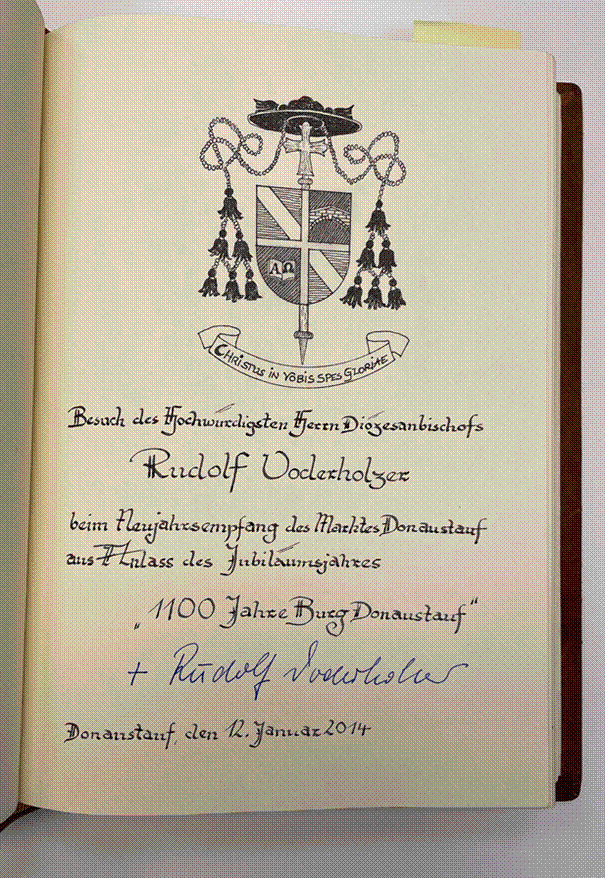 AΩ
CHRISTUS IN VOBIS SPES GLORIAE
Besuch des Hochwürdigsten Herrn Diözesanbischofs
Rudolf Voderholzer
beim Neujahrsempfang des Marktes Donaustauf
aus Anlass des Jubiläumsjahres
„1100 Jahre Burg Donaustauf"
+ Rudolf Voderholzer
Donaustauf, den 12. Januar 2014